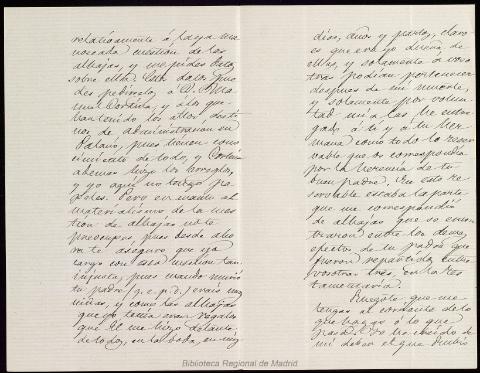 relativamente á la ya ma
noseada cuestion de las
alhajas, y me pides datos
sobre ella. Esos datos pue
des pedirselos á D. Ma
nuel Cortina, y á los que
han tenido los altos desti
nos de administracion en
Palacio, pues tienen cono
cimiento de todo, y Cortina
ademas hizo los arreglos,
y yo aqui no tengo pa
peles. Pero en cuanto al
materialismo de la cues
tion de alhajas no te
preocupes, pues desde aho
ra te aseguro que yo
cargo con esa cuestion tan
injusta, pues cuando murió
tu padre (q.e.p.d.) erais muy
niñas, y como las alhajas
que yo tenia eran regalos
que El me hizo delante
de todos, en la boda, en mis
dias, años y partos, claro
es que era yo dueña de
ellas, y solamente á voso
tras podian pertenecer
despues de mi muerte,
y solamente por volun
tad mia las he entre
gado á ti y á tu her
mana como todo lo reser
vable que os correspondia
por la herencia de tu
buen padre. En esta re
servable estaba la parte
que me correspondió
de alhajas que se encon
traron entre los demas
efectos de tu padre que
fueron repartidos entre
vosotras tres, en la tes
tamentaria.
Ruegote que me
tengas al corriente de lo
que hagas ó lo que
pase. Yo he creido de
mi deber el que dentro
Biblioteca Regional de Madrid